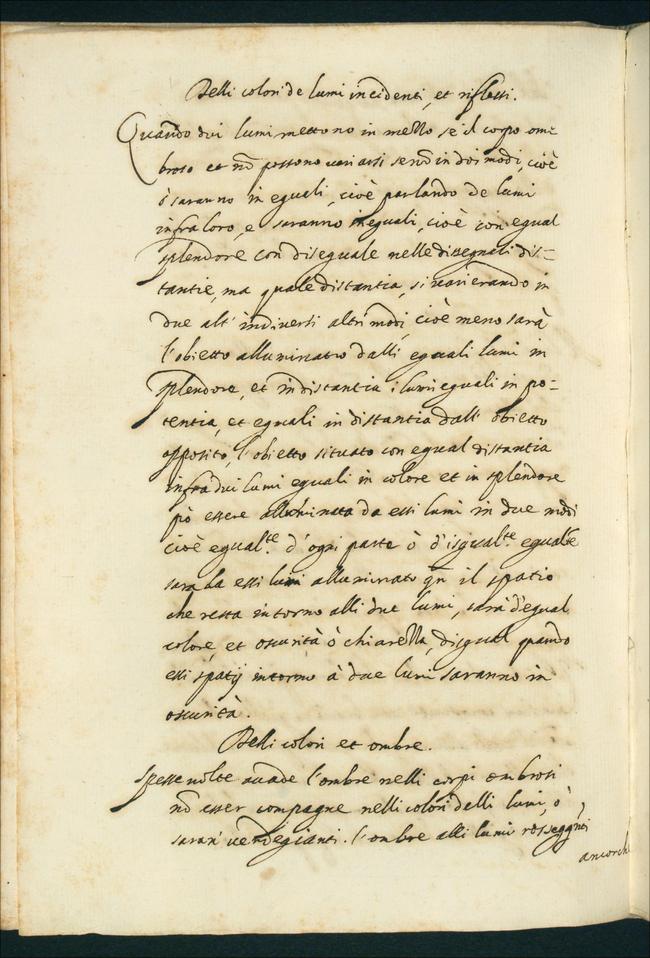 Delli colori de lumi incidenti, et riflessi.
Quando dui lumi mettono in mezzo se il corpo om=
broso et nō possono variarsi senō in doi modi, cioè
ò saranno in eguali, cioè parlando de lumi
infra loro, e saranno ineguali, cioè con egual
splendore con diseguale nelle disegnali dis=
tantie, ma quale distantia, si varierando in
due alt' indiversi altri modi, cioè meno sarà
l'obietto alluminatto dalli eguali lumi in
splendore, et indistantia i lumi eguali in po=
tentia, et eguali in distantia dall' obietto
opposito, l'obietto situato con egual distantia
infra dui lumi eguali in colore et in splendore
pò essere alluminata da essi lumi in due modi
cioè egual.te d'ogni parte ò d'isgual.te egualte
sara da essi lumi alluminato qn̄ il spatio
che resta intorno alli due lumi, sarà d'egual
colore, et oscurità ò chiarezza, disgual quando
essi spatij intorno à due lumi saranno in
oscurità.
Delli colori et ombre.
Spesse volte acade l'ombre nelli corpi ombrosi
nō esser compagne nelli colori delli lumi, ò
saran' verdegianti. l'ombre alli lumi rosseggnti
ancorch